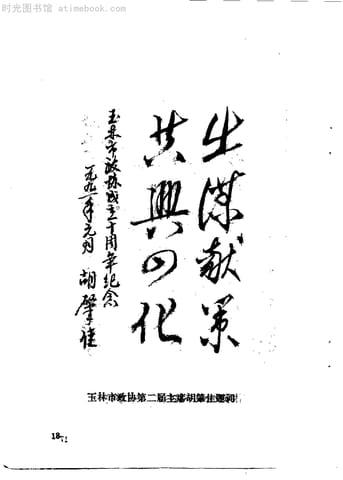 时光图书馆 atimebook.com
出谋献策
共興四化
玉林市政协成立十周年纪念
一九九一年元月 胡肇佳
玉林市政协第二届主席胡肇佳题词
18